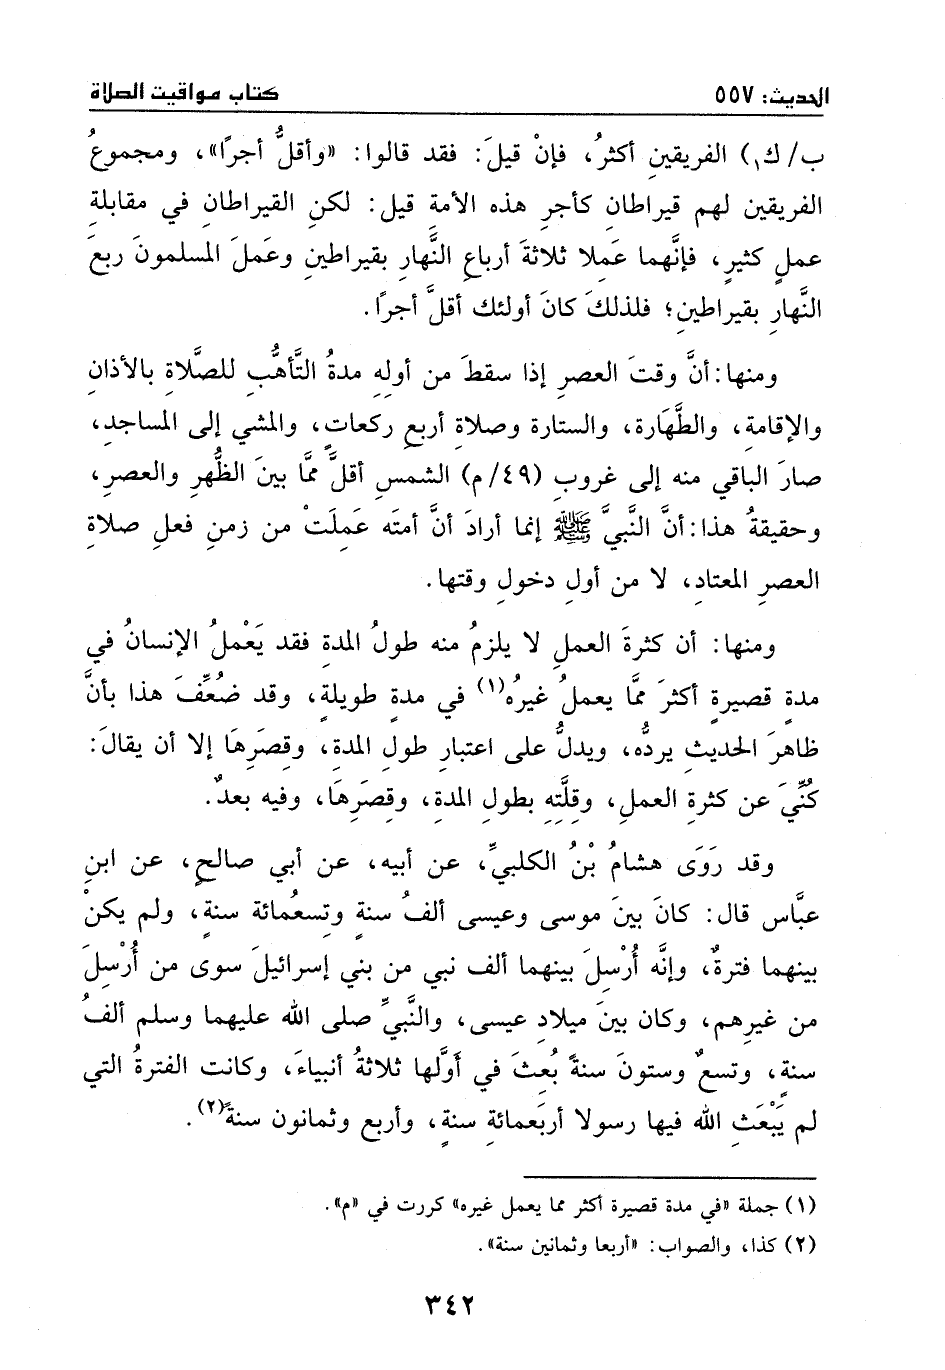 الحديث: ٥٥٧
كتاب مواقيت الصلاة
ب/ك١) الفريقينِ أكثرُ، فإنْ قيلَ: فقد قالوا: «وأقلُّ أجرًا»، ومجموعُ
الفريقين لهم قيراطانِ كأجرِ هذه الأمةِ قيل: لكنِ القيراطانِ في مقابلةِ
عملٍ كثيرٍ، فإنَّهما عَملا ثلاثةَ أرباعِ النَّهارِ بقيراطينِ وعَملَ المسلمونَ ربعَ
النَّهارِ بقيراطينِ؛ فلذلكَ كانَ أولئك أقلَّ أجرًا.
ومنها: أنَّ وقتَ العصرِ إذا سقطَ من أولِهِ مدةُ التَّأهُّبِ للصَّلاةِ بالأذانِ
والإقامةِ، والطَّهَارة، والستارة وصلاةِ أربعِ ركعاتٍ، والمشي إلى المساجدِ،
صارَ الباقي منه إلى غروبِ (٤٩/م) الشمسِ أقلَّ ممَّا بينَ الظُّهرِ والعصرِ،
وحقيقةُ هذا: أنَّ النَّبيَّ ﷺ إنما أرادَ أنَّ أمتَه عَملَتْ من زمنِ فعلِ صلاةِ
العصرِ المعتادِ، لا من أولِ دخولِ وقتها.
ومنها: أن كثرةَ العملِ لا يلزمُ منه طولُ المدةِ فقد يَعْملُ الإنسانُ في
مدةٍ قصيرةٍ أكثرَ ممَّا يعملُ غيرُه(١) في مدةٍ طويلةٍ، وقد ضُعِّفَ هذا بأنَّ
ظاهرَ الحديثِ يردُّه، ويدلُّ على اعتبارِ طولِ المدة، وقصَرِهَا إلا أن يقالَ:
كُنِّيَ عن كثرةِ العملِ، وقلَّتِهِ بطولِ المدة، وقصَرِهَا، وفيه بعدٌ.
وقد رَوَى هشامُ بْنُ الكلبيِّ، عن أبيه، عن أبي صالحٍ، عن ابنِ
عبَّاس قال: كانَ بينَ موسى وعيسى ألفُ سنةٍ وتسعُمائة سنةٍ، ولم يكنْ
بينهما فترةٌ، وإنَّه أُرْسِلَ بينهما ألف نبي من بني إسرائيلَ سوى من أُرْسِلَ
من غيرهم، وكان بينَ ميلادِ عيسى، والنَّبيِّ صلى الله عليهما وسلم ألفُ
سنةٍ، وتسعٌ وستونَ سنةً بُعثَ في أوَّلها ثلاثةُ أنبياءَ، وكانت الفترةُ التي
لم يَبْعَثِ الله فيها رسولا أربَعمائةِ سنةٍ، وأربع وثمانون سنةً(٢).
(١) جملة «في مدة قصيرة أكثر مما يعمل غيره» كررت في «م».
(٢) كذا، والصواب: «أربعا وثمانين سنة».
٣٤٢